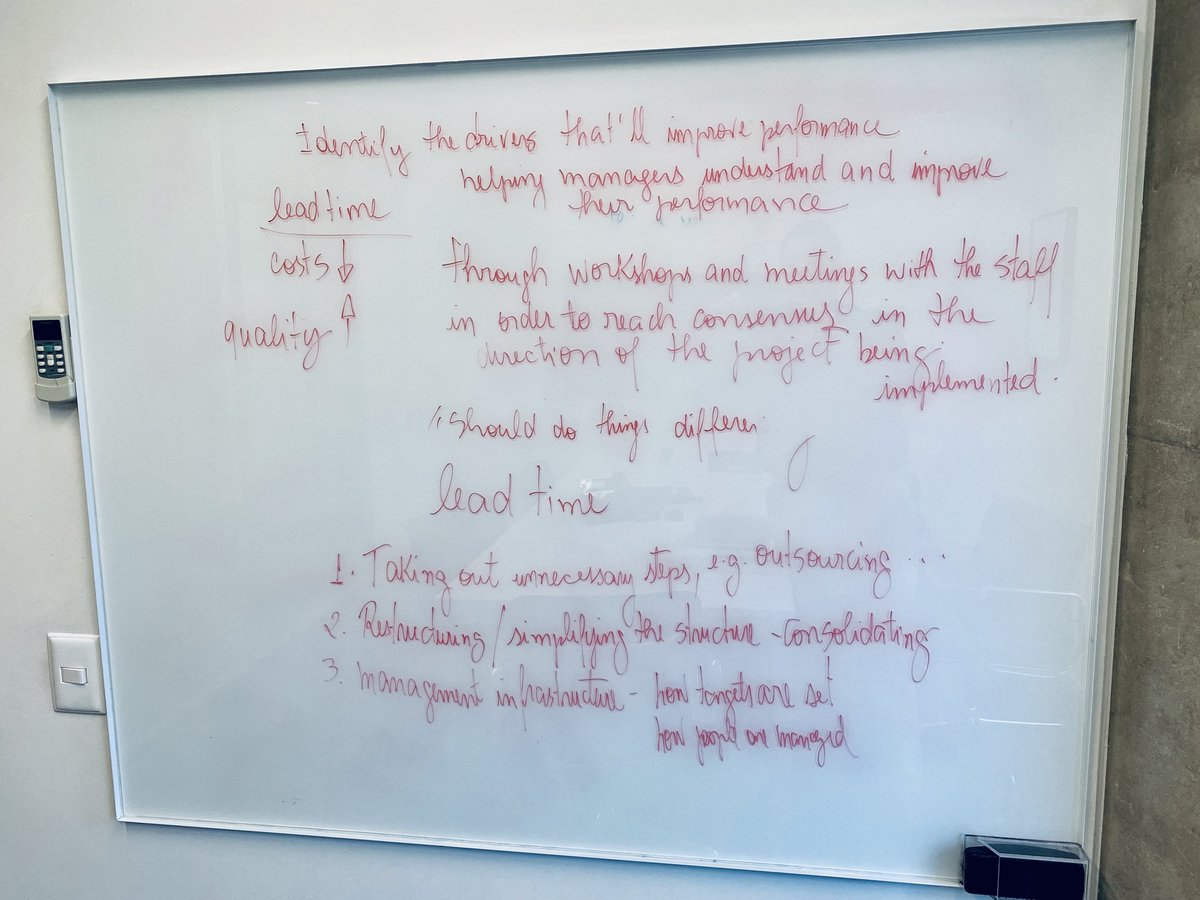 Identify the drivers that'll improve performance
helping managers understand and improve
their performance
lead time
costs ↓
quality ↑
Through workshops and meetings with the staff
in order to reach consensus in the
direction of the project being
implemented.
"should do things differen
lead time
1. Taking out unnecessary steps, e.g. outsourcing ...
2. Restructuring / simplifying the structure - consolidating
3. management infrastructure - how targets are set
how people are managed